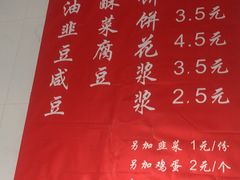 油酥饼
韭菜饼 3.5元
豆腐花 4.5元
咸豆浆 3.5元
豆浆 2.5元
另加韭菜 1元/份
另加鸡蛋 2元/个